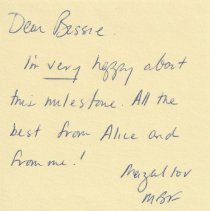 Dear Bessie.
I'm very happy about
this milestone. All the
best from Alice and
from me!
Mazal tov
MBF